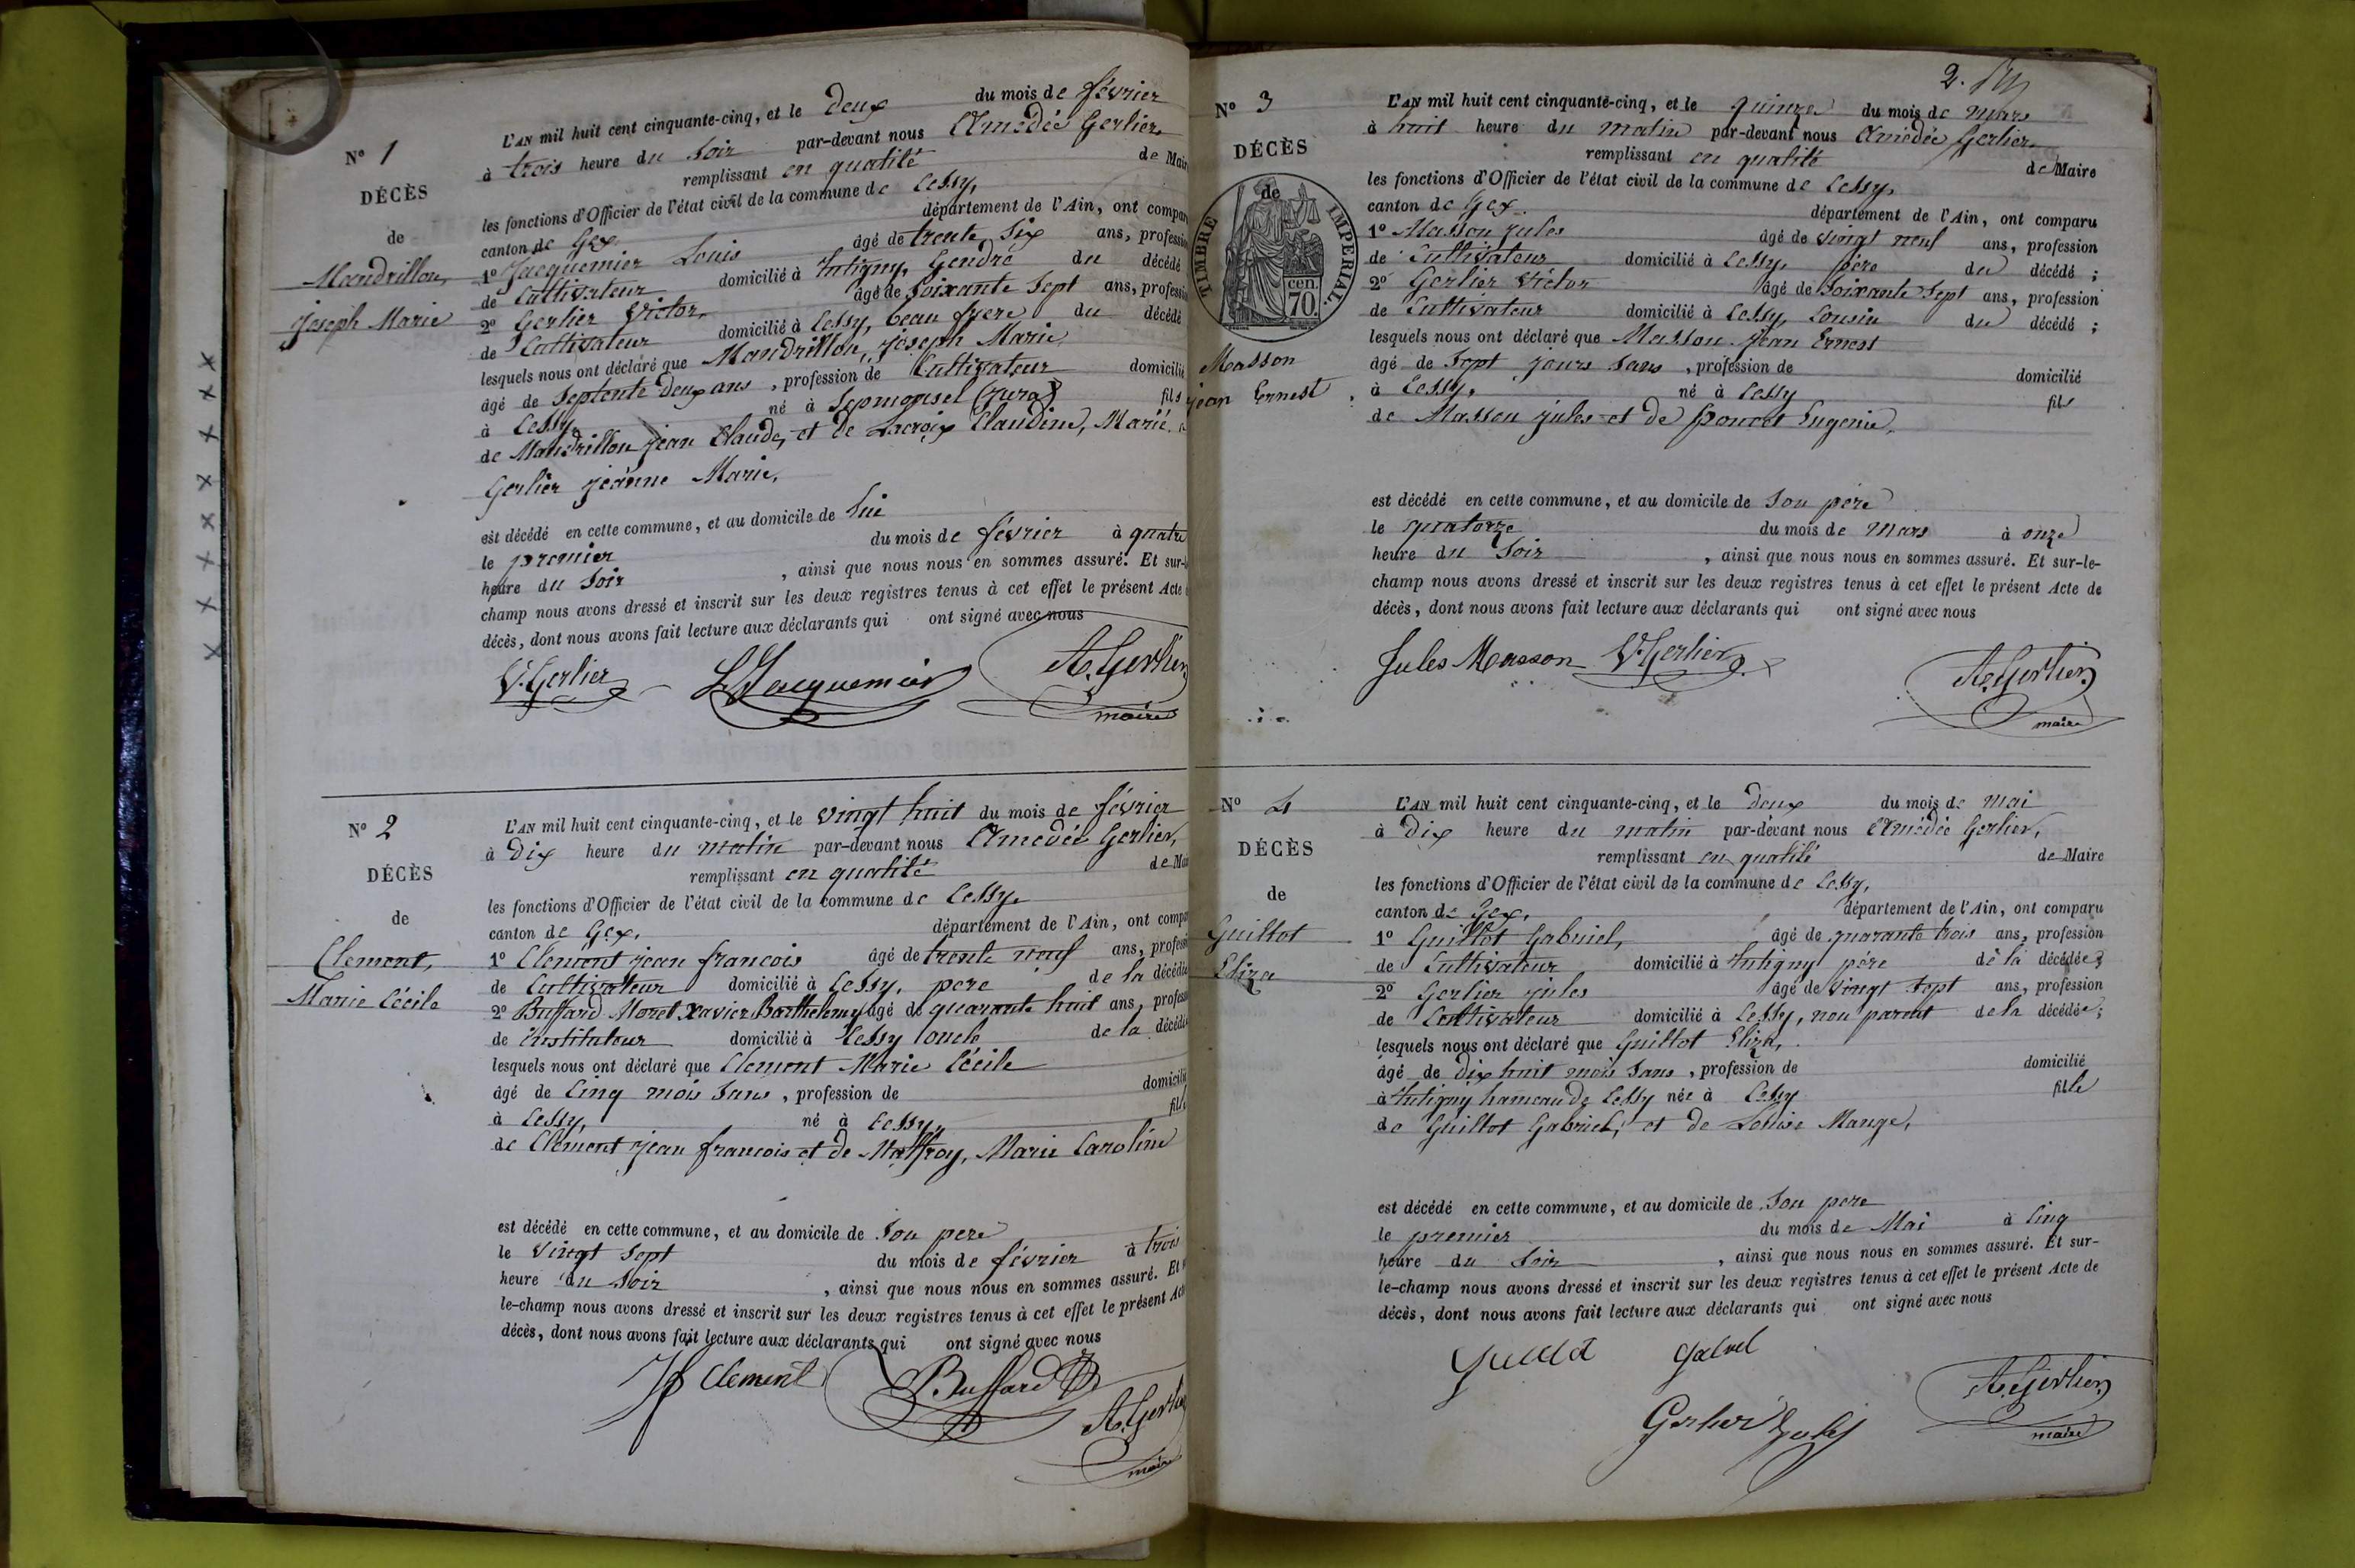 N° 1
DÉCÈS
de
Mandrillon,
Joseph Marie
L'AN mil huit cent cinquante-cinq, et le deux du mois de février
à trois heure du soir par-devant nous Amédée Gerlier,
remplissant en qualité de Maire
les fonctions d'Officier de l'état civil de la commune de Cessy,
canton de Gex département de l'Ain, ont compar
1° Jacquemier Louis âgé de trente six ans, profession
de Cultivateur domicilié à Tutigny, Gendre du décédé
2° Gerlier Victor, âgé de soixante sept ans, profession
de Cultivateur domicilié à Cessy, beau frere du décédé
lesquels nous ont déclaré que Mandrillon, joseph Marie
âgé de septente deux ans, profession de Cultivateur domicilié
à Cessy, né à Sepmonsel (jura) fils
de Mandrillon jean Claude, et de Lacroix Claudine, Marié à
Gerlier jeánne Marie,
est décédé en cette commune, et au domicile de lui
le premier du mois de février à quatre
heure du soir, ainsi que nous nous en sommes assuré. Et sur-le
champ nous avons dressé et inscrit sur les deux registres tenus à cet effet le présent Acte
décès, dont nous avons fait lecture aux déclarants qui ont signé avec nous
V. Gerlier L Jacquemier A. Gerlier
maire
N° 2
DÉCÈS
de
Clement,
Marie Cécile
L'AN mil huit cent cinquante-cinq, et le vingt huit du mois de février
à dix heure du matin par-devant nous Amédée Gerlier,
remplissant en qualité de Mai
les fonctions d'Officier de l'état civil de la commune de Cessy,
canton de Gex, département de l'Ain, ont compa
1° Clément jean francois âgé de trente neuf ans, professi
de Cultivateur domicilié à Cessy, pere de la décédée
2° Buffard Moret Xavier Barthelemy âgé de quarante huit ans, profess
de instituteur domicilié à Cessy oncle de la décédée
lesquels nous ont déclaré que Clement Marie Cécile
âgé de cinq mois sans, profession de domicilié
à Cessy, né à Cessy, fille
de Clément jean francois et de Matfroy, Marie Caroline
est décédé en cette commune, et au domicile de son pere
le vingt sept du mois de février à trois
heure du soir, ainsi que nous nous en sommes assuré. Et
le-champ nous avons dressé et inscrit sur les deux registres tenus à cet effet le présent Acte
décès, dont nous avons fait lecture aux déclarants qui ont signé avec nous
Jf Clement Buffard A. Gerlier
maire
2.
N° 3
DÉCÈS
de
TIMBRE IMPERIAL.
cen.
70.
Masson
jean Ernest
L'AN mil huit cent cinquante-cinq, et le quinze du mois de mars
à huit heure du matin par-devant nous Amédée Gerlier,
remplissant en qualité de Maire
les fonctions d'Officier de l'état civil de la commune de Cessy,
canton de Gex département de l'Ain, ont comparu
1° Masson jules âgé de vingt neuf ans, profession
de Cultivateur domicilié à Cessy, père du décédé ;
2° Gerlier Victor âgé de soixante sept ans, profession
de Cultivateur domicilié à Cessy, Cousin du décédé ;
lesquels nous ont déclaré que Masson jean Ernest
âgé de sept jours sans, profession de domicilié
à Cessy, né à Cessy fils
de Masson jules et de poncet Eugenie,
est décédé en cette commune, et au domicile de son père
le quatorze du mois de mars à onze
heure du soir, ainsi que nous nous en sommes assuré. Et sur-le-
champ nous avons dressé et inscrit sur les deux registres tenus à cet effet le présent Acte de
décès, dont nous avons fait lecture aux déclarants qui ont signé avec nous
Jules Masson V. Gerlier A. Gerlier
maire
N° 4
DÉCÈS
de
Guillot
Eliza
L'AN mil huit cent cinquante-cinq, et le deux du mois de mai
à dix heure du matin par-devant nous Amédée Gerlier,
remplissant en qualité de Maire
les fonctions d'Officier de l'état civil de la commune de Cessy,
canton de Gex, département de l'Ain, ont comparu
1° Guillot Gabriel, âgé de quarante trois ans, profession
de Cultivateur domicilié à Tutigny père de la décédée ;
2° Gerlier jules âgé de vingt sept ans, profession
de Cultivateur domicilié à Cessy, non parent de la décédée ;
lesquels nous ont déclaré que Guillot Eliza,
âgé de dix huit mois sans, profession de domicilié
à Tutigny hameau de Cessy née à Cessy fille
de Guillot Gabriel, et de Louise Mange,
est décédé en cette commune, et au domicile de son pere
le premier du mois de Mai à cinq
heure du soir, ainsi que nous nous en sommes assuré. Et sur-
le-champ nous avons dressé et inscrit sur les deux registres tenus à cet effet le présent Acte de
décès, dont nous avons fait lecture aux déclarants qui ont signé avec nous
A. Gerlier
Gerlier Jules maire